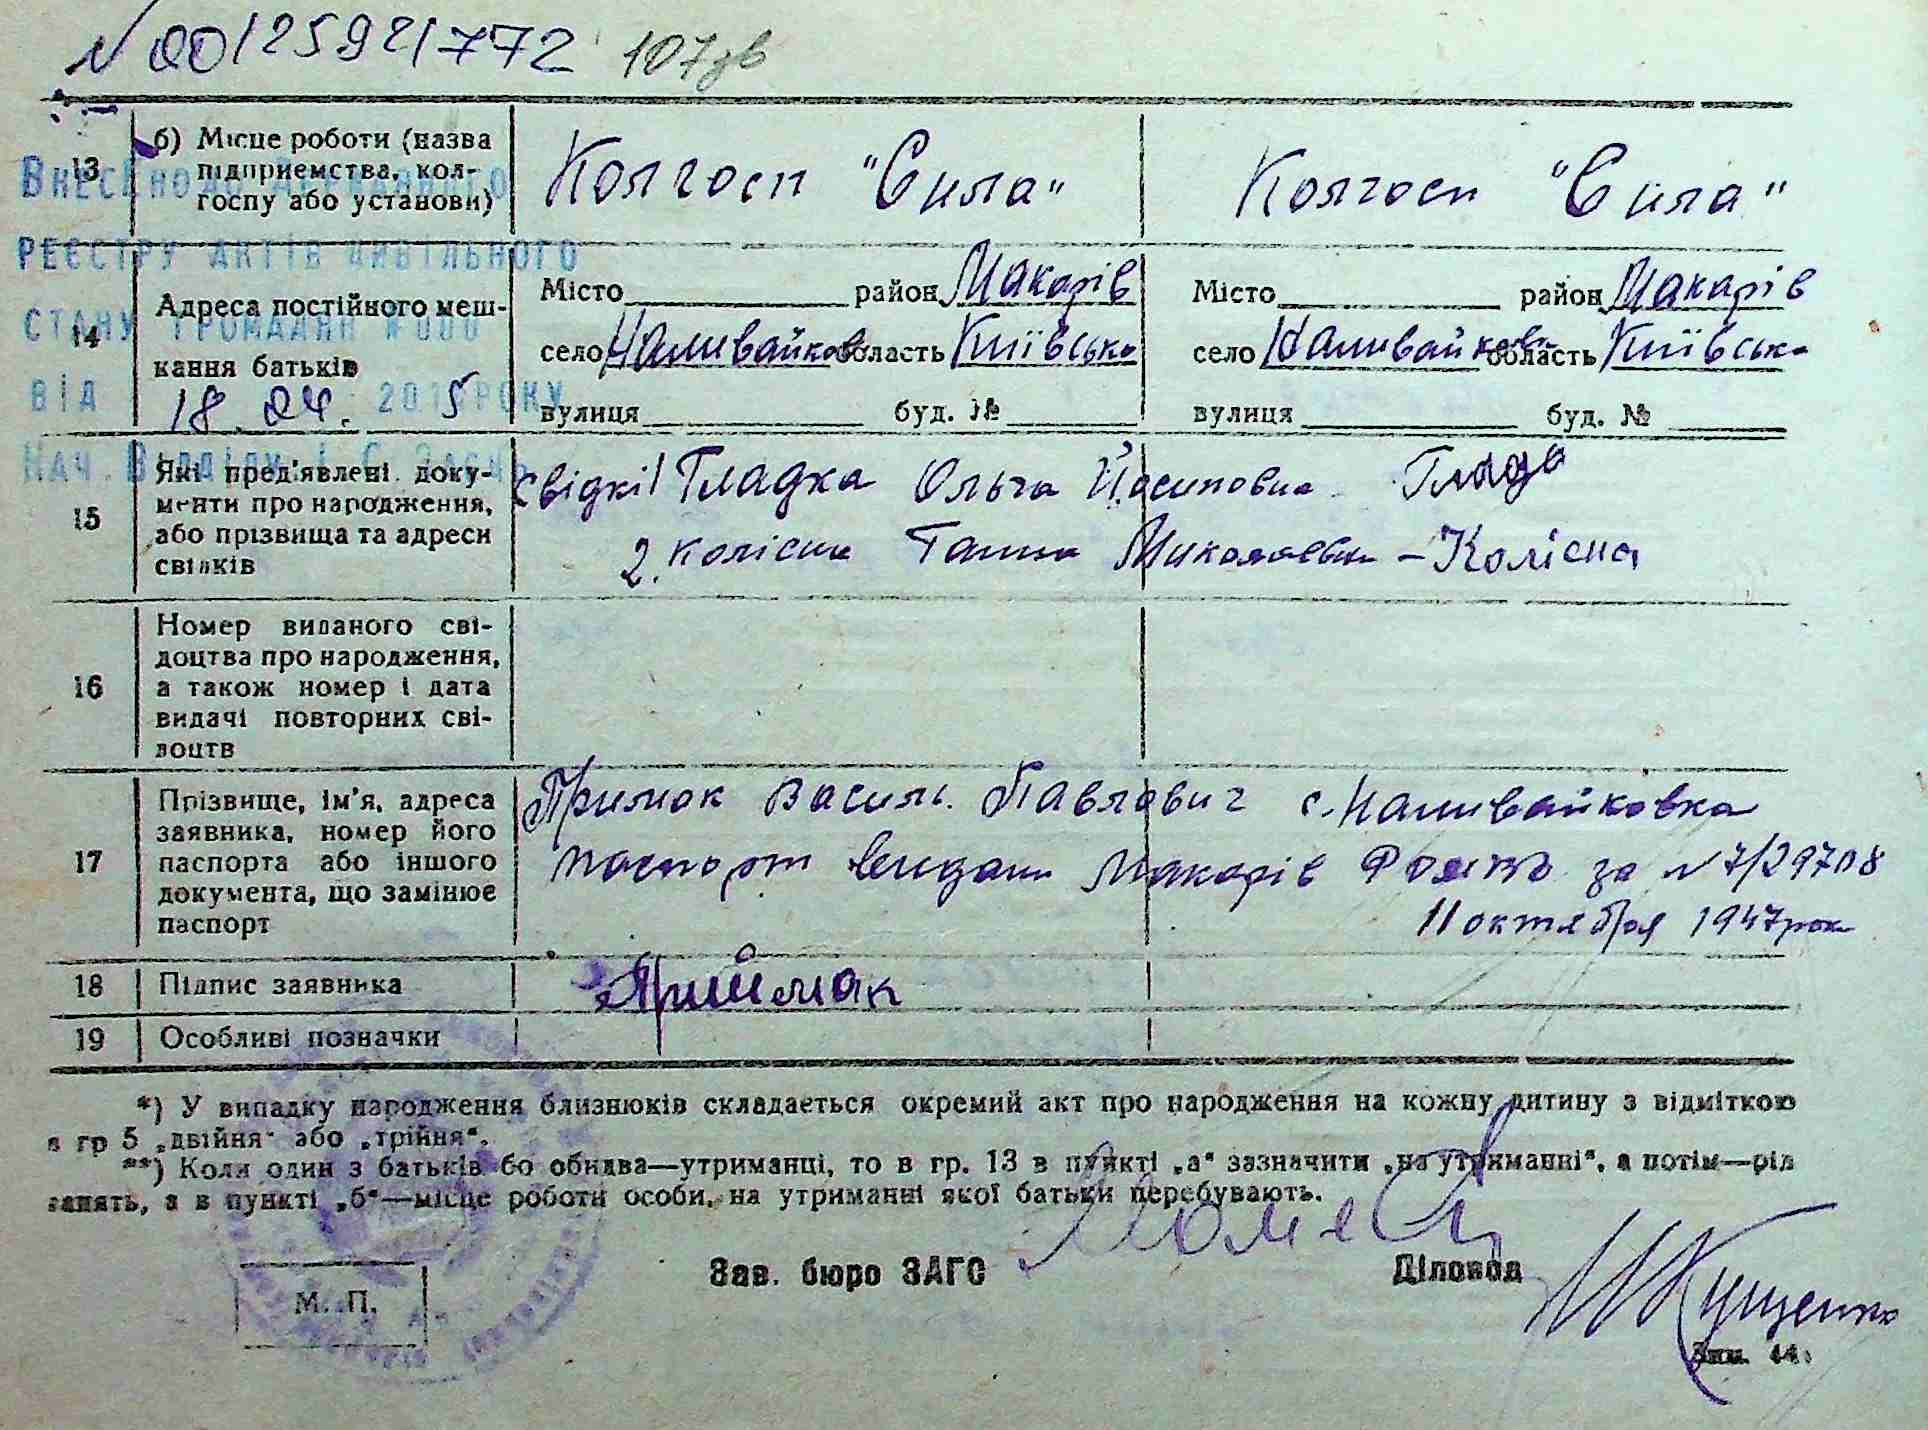 N 00125921772 107зв
13 б) Місце роботи (назва підприємства, колгоспу або установи) Колгосп "Сила" Колгосп "Сила"
Внесено до Державного
реєстру актів цивільного
стану громадян № 000
від 18.04. 2015 року
Нач. Відділу І.С. Заєць
14 Адреса постійного мешкання батьків
Місто район Макарів Місто район Макарів
село Наливайков область Київська село Наливайков область Київська
вулиця буд. № вулиця буд. №
15 Які пред'явлені документи про народження, або прізвища та адреси свідків
свідкі 1 Гладка Ольга Йосиповна
2. Колісна Ганна Миколаевна - Колісна
16 Номер виданого свідоцтва про народження, а також номер і дата видачі повторних свідоцтв
17 Прізвище, ім'я, адреса заявника, номер його паспорта або іншого документа, що замінює паспорт
Примок Василь Павлович с. Наливайковка
паспорт видани Макарів за N 7/29708
11 октября 1947 рок
18 Підпис заявника Приймак
19 Особливі позначки
*) У випадку народження близнюків складається окремий акт про народження на кожну дитину з відміткою
в гр 5 „двійня" або „трійня".
**) Коли один з батьків бо обидва—утриманці, то в гр. 13 в пункті „а" зазначити „на утриманні", а потім—рід
занять, а в пункті „б"—місце роботи особи, на утриманні якої батьки перебувають.
Зав. бюро ЗАГС Діловод Кущенко
М. П.
Зам. 44